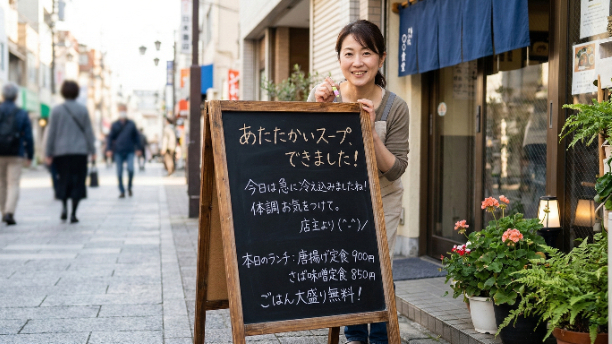 あたたかいスープ、
できました!
今日は急に冷え込みましたね!
体調お気をつけて。
店主より (^-^)/
本日のランチ:唐揚げ定食 900円
さば味噌定食 850円
ごはん大盛り無料!